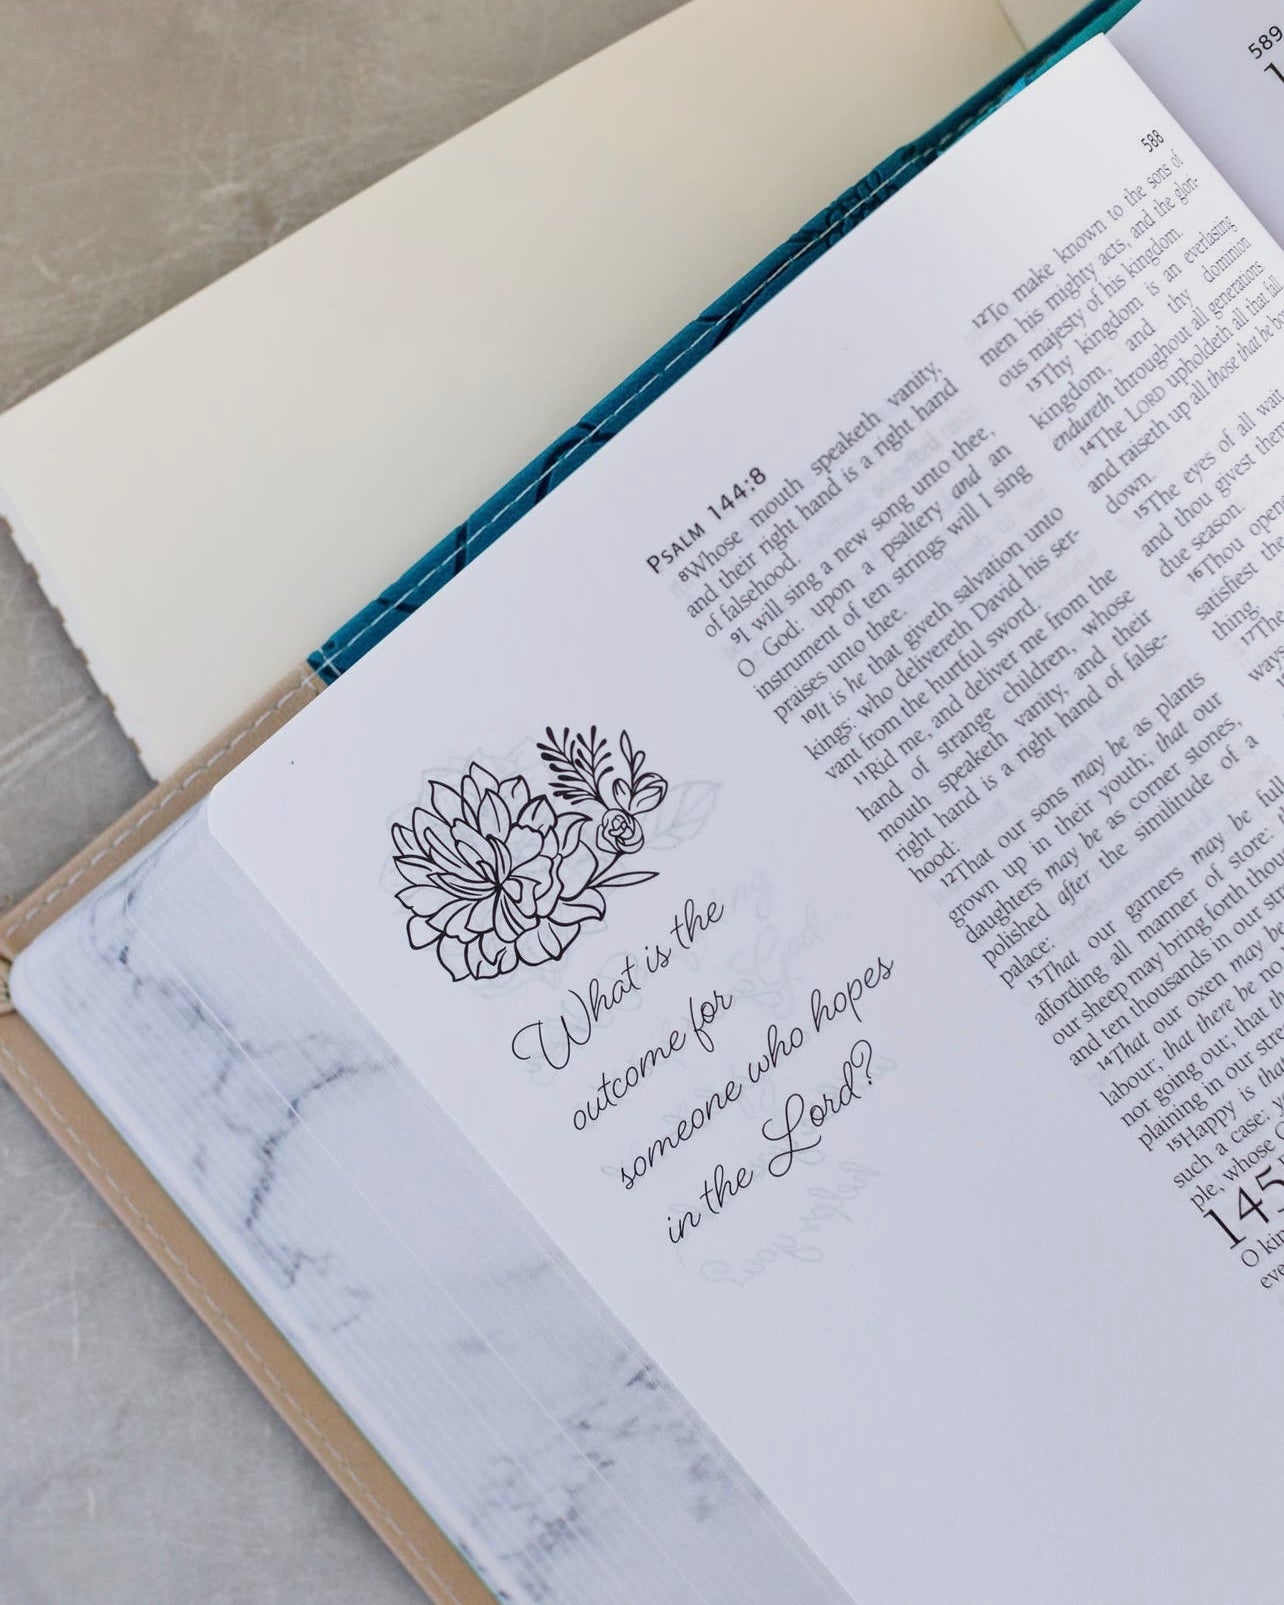 589
588
PSALM 144:8
8Whose mouth speaketh vanity,
and their right hand is a right hand
of falsehood.
9I will sing a new song unto thee,
O God: upon a psaltery and an
instrument of ten strings will I sing
praises unto thee.
10It is he that giveth salvation unto
kings: who delivereth David his ser-
vant from the hurtful sword.
11Rid me, and deliver me from the
hand of strange children, whose
mouth speaketh vanity, and their
right hand is a right hand of false-
hood:
12That our sons may be as plants
grown up in their youth; that our
daughters may be as corner stones,
polished after the similitude of a
palace:
13That our garners may be full,
affording all manner of store:
our sheep may bring forth
and ten thousands in our
14That our oxen may be
labour; that there be no
nor going out; that
plaining in our
15Happy is that
such a case:
ple, whose
145
O
12To make known to the sons of
men his mighty acts, and the glori-
ous majesty of his kingdom.
13Thy kingdom is an everlasting
kingdom, and thy dominion
endureth throughout all generations
14The LORD upholdeth all that fall,
and raiseth up all those that be
down.
15The eyes of all wait
and thou givest
due season.
16Thou
satisfiest the
thing.
17The
ways
What is the
outcome for
someone who hopes
in the Lord?